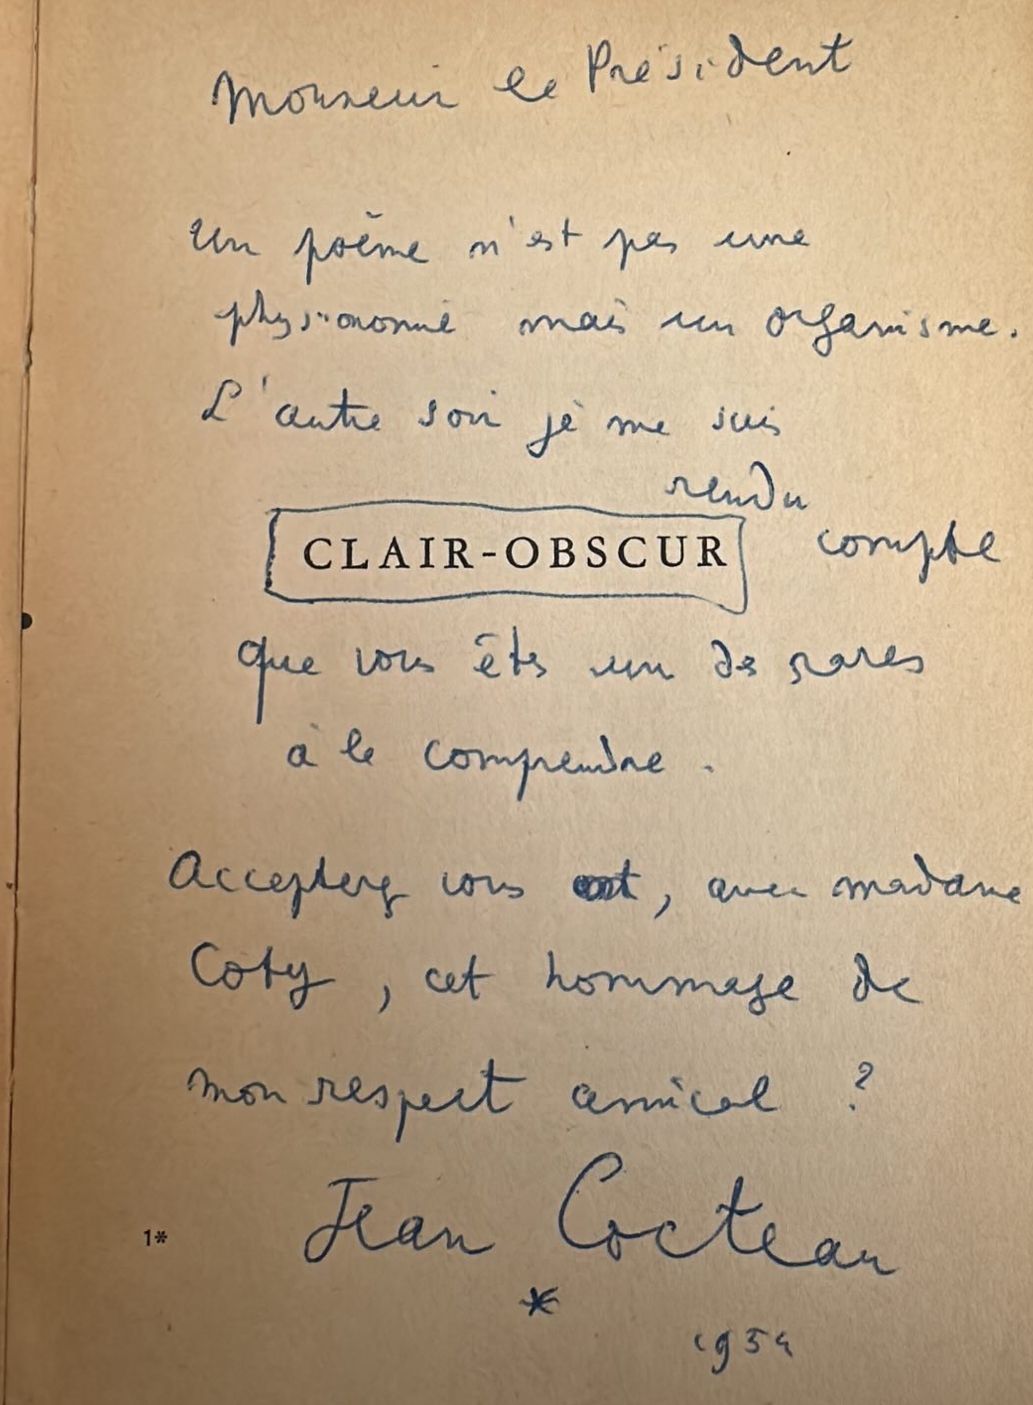 Monsieur le Président
Un poème n'est pas une
physionomie mais un organisme.
L'autre soir je me suis
rendu
CLAIR-OBSCUR compte
que vous êtes un des rares
à le comprendre.
Accepterez vous , avec madame
Coty, cet hommage de
mon respect amical ?
Jean Cocteau
*
1*
1954